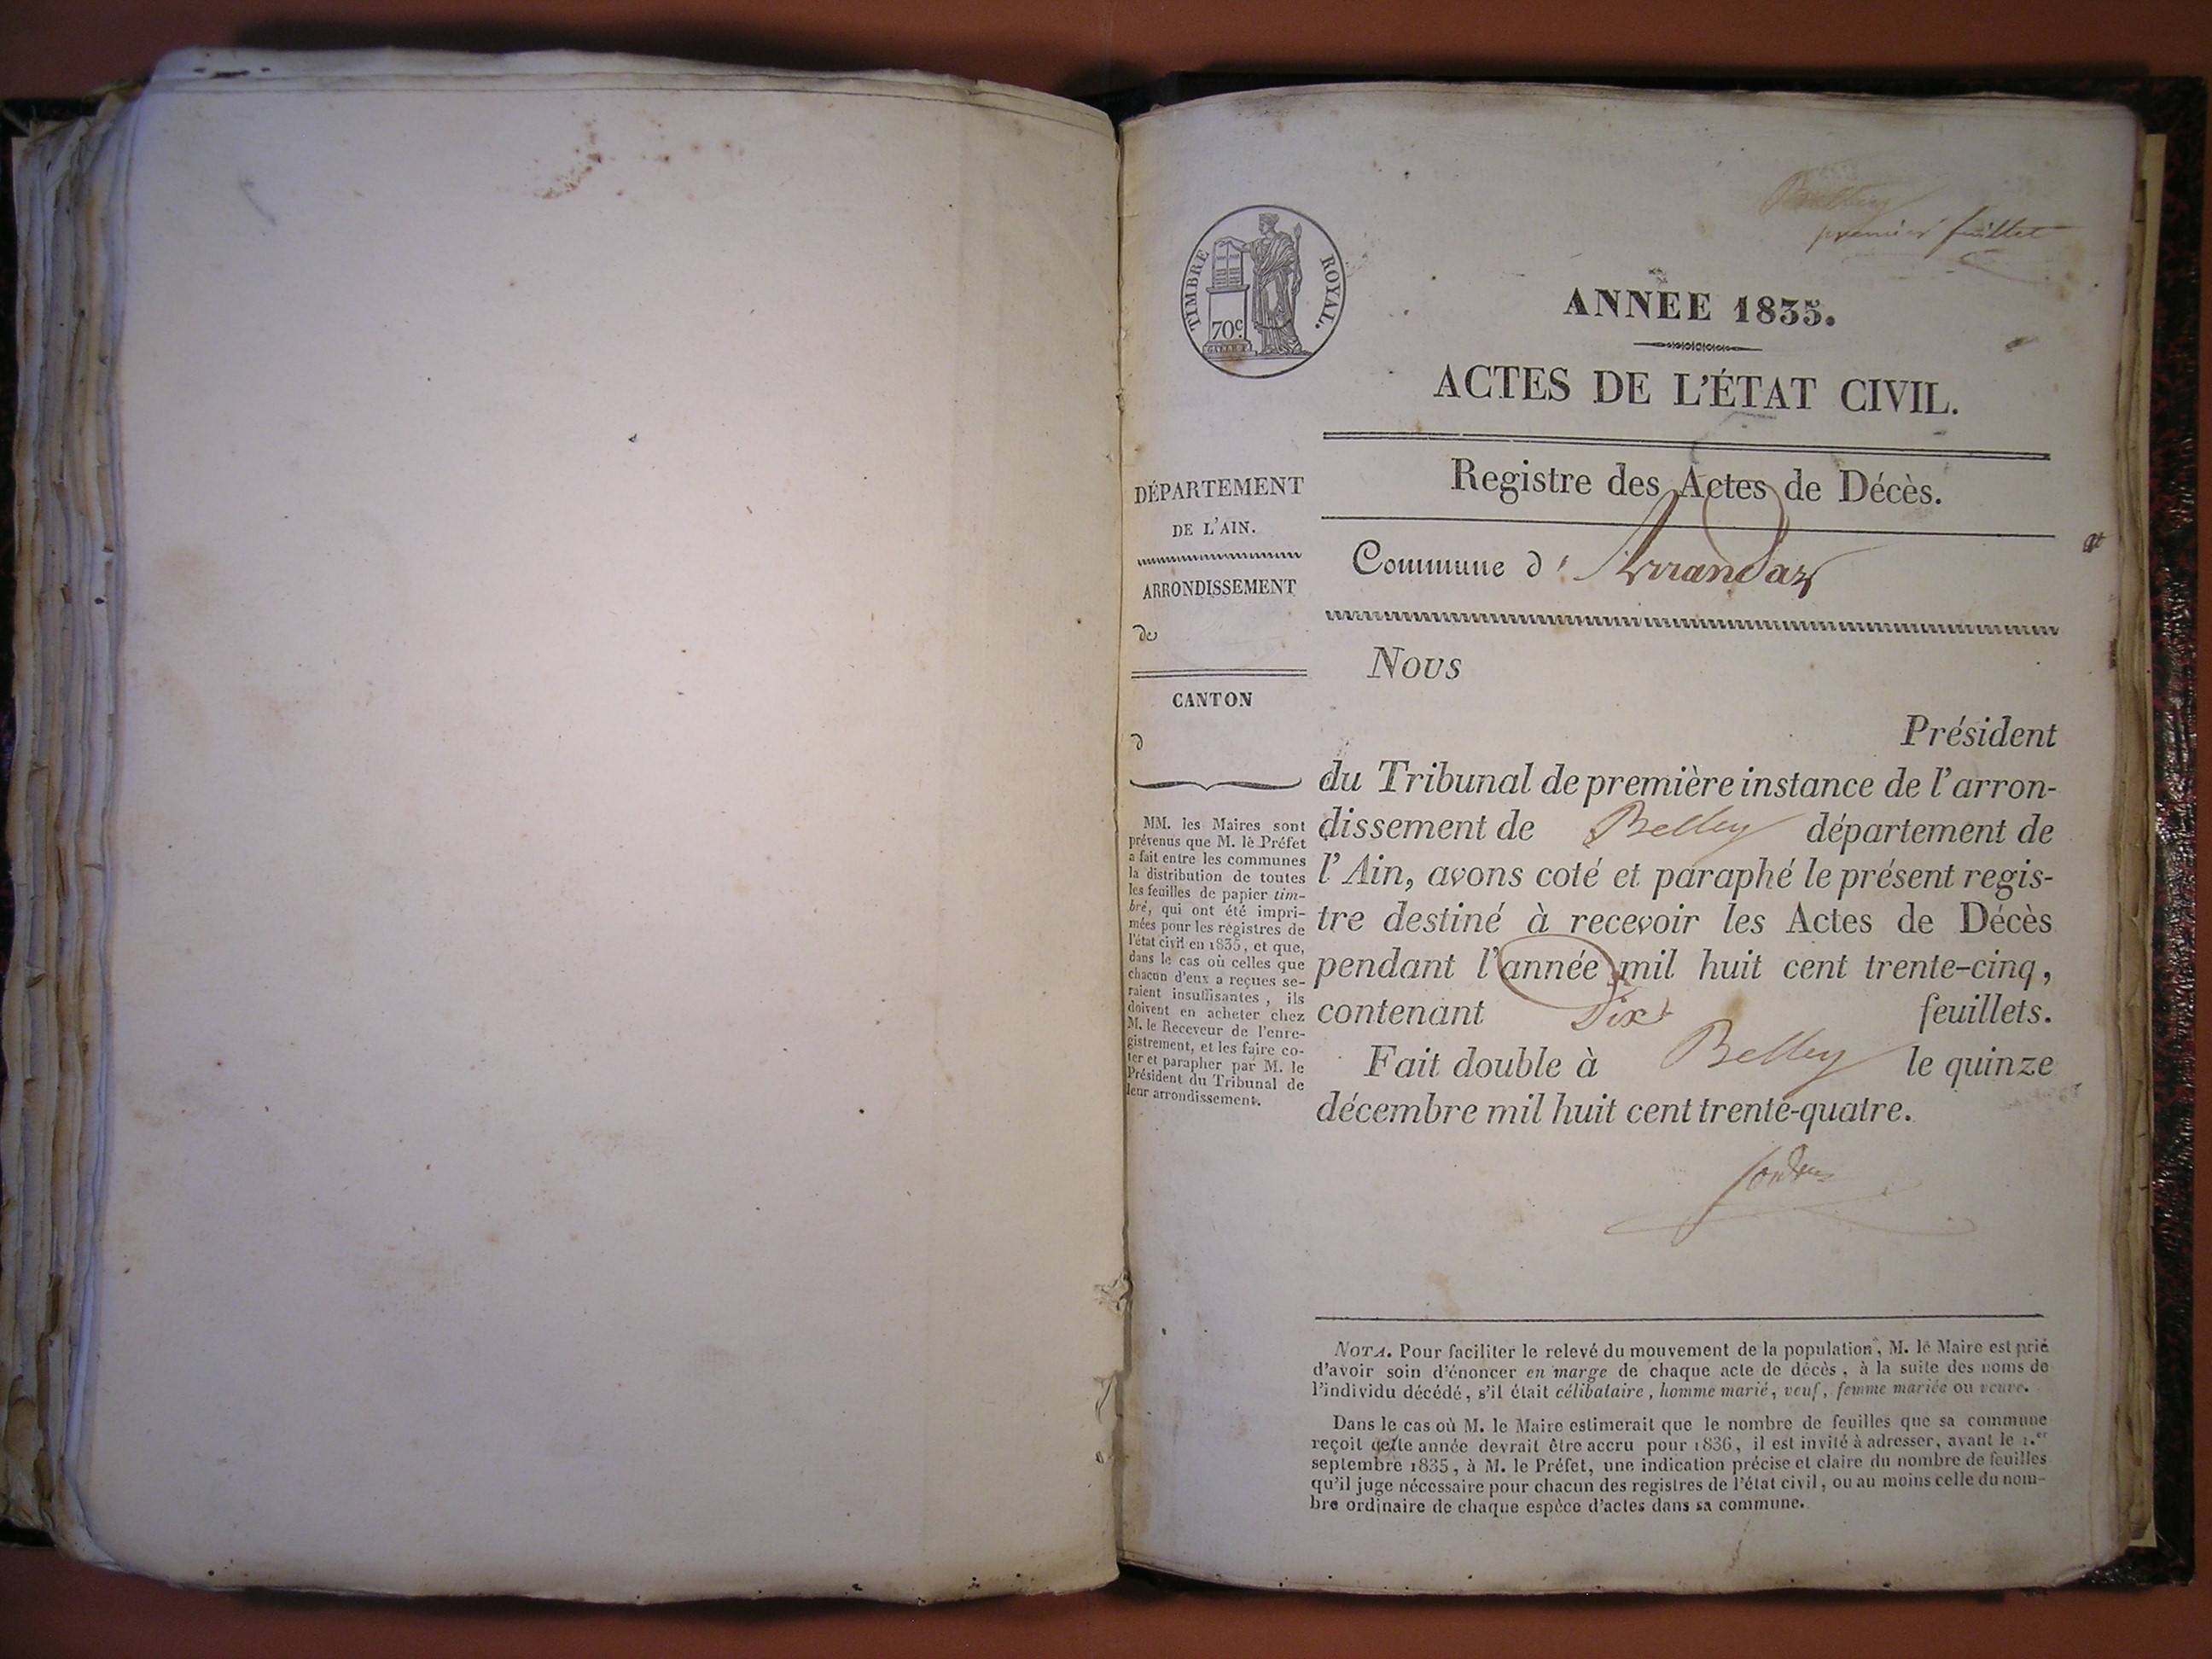 premier feuillet
TIMBRE ROYAL.
70c
ANNÉE 1835.
ACTES DE L'ÉTAT CIVIL.
Registre des Actes de Décès.
Commune d' Arrandaz
DÉPARTEMENT
DE L'AIN.
ARRONDISSEMENT
de
CANTON
d
MM. les Maires sont
prévenus que M. le Préfet
a fait entre les communes
la distribution de toutes
les feuilles de papier tim-
bré, qui ont été impri-
mées pour les régistres de
l'état civil en 1835, et que,
dans le cas où celles que
chacun d'eux a reçues se-
raient insuffisantes, ils
doivent en acheter chez
M. le Receveur de l'enre-
gistrement, et les faire co-
ter et parapher par M. le
Président du Tribunal de
leur arrondissement.
Nous
Président
du Tribunal de première instance de l'arron-
dissement de Belley département de
l'Ain, avons coté et paraphé le présent regis-
tre destiné à recevoir les Actes de Décès
pendant l'année mil huit cent trente-cinq,
contenant Dix feuillets.
Fait double à Belley le quinze
décembre mil huit cent trente-quatre.
NOTA. Pour faciliter le relevé du mouvement de la population, M. le Maire est prié
d'avoir soin d'énoncer en marge de chaque acte de décès, à la suite des noms de
l'individu décédé, s'il était célibataire, homme marié, veuf, femme mariée ou veuve.
Dans le cas où M. le Maire estimerait que le nombre de feuilles que sa commune
reçoit cette année devrait être accru pour 1836, il est invité à adresser, avant le 1.er
septembre 1835, à M. le Préfet, une indication précise et claire du nombre de feuilles
qu'il juge nécessaire pour chacun des registres de l'état civil, ou au moins celle du nom-
bre ordinaire de chaque espèce d'actes dans sa commune.